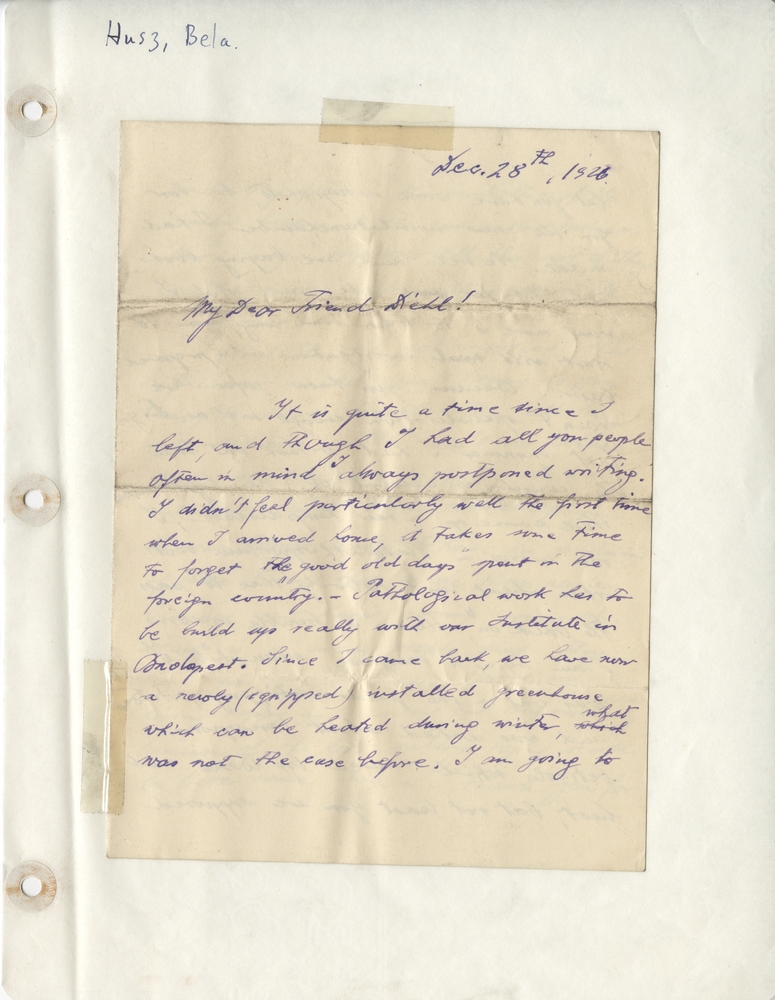 Husz, Bela.
Dec. 28th, 1926.
My Dear Friend Diehl!
It is quite a time since I
left, and though I had all you people
often in mind I always postponed writing.
I didn't feel particularly well the first time
when I arrived home, it takes some time
to forget the "good old days" spent in the
foreign country. – Pathological work has to
be build up really with our Institute in
Budapest. Since I came back, we have now
a newly (equipped) installed greenhouse
which can be heated during winter, which what
was not the case before. I am going to